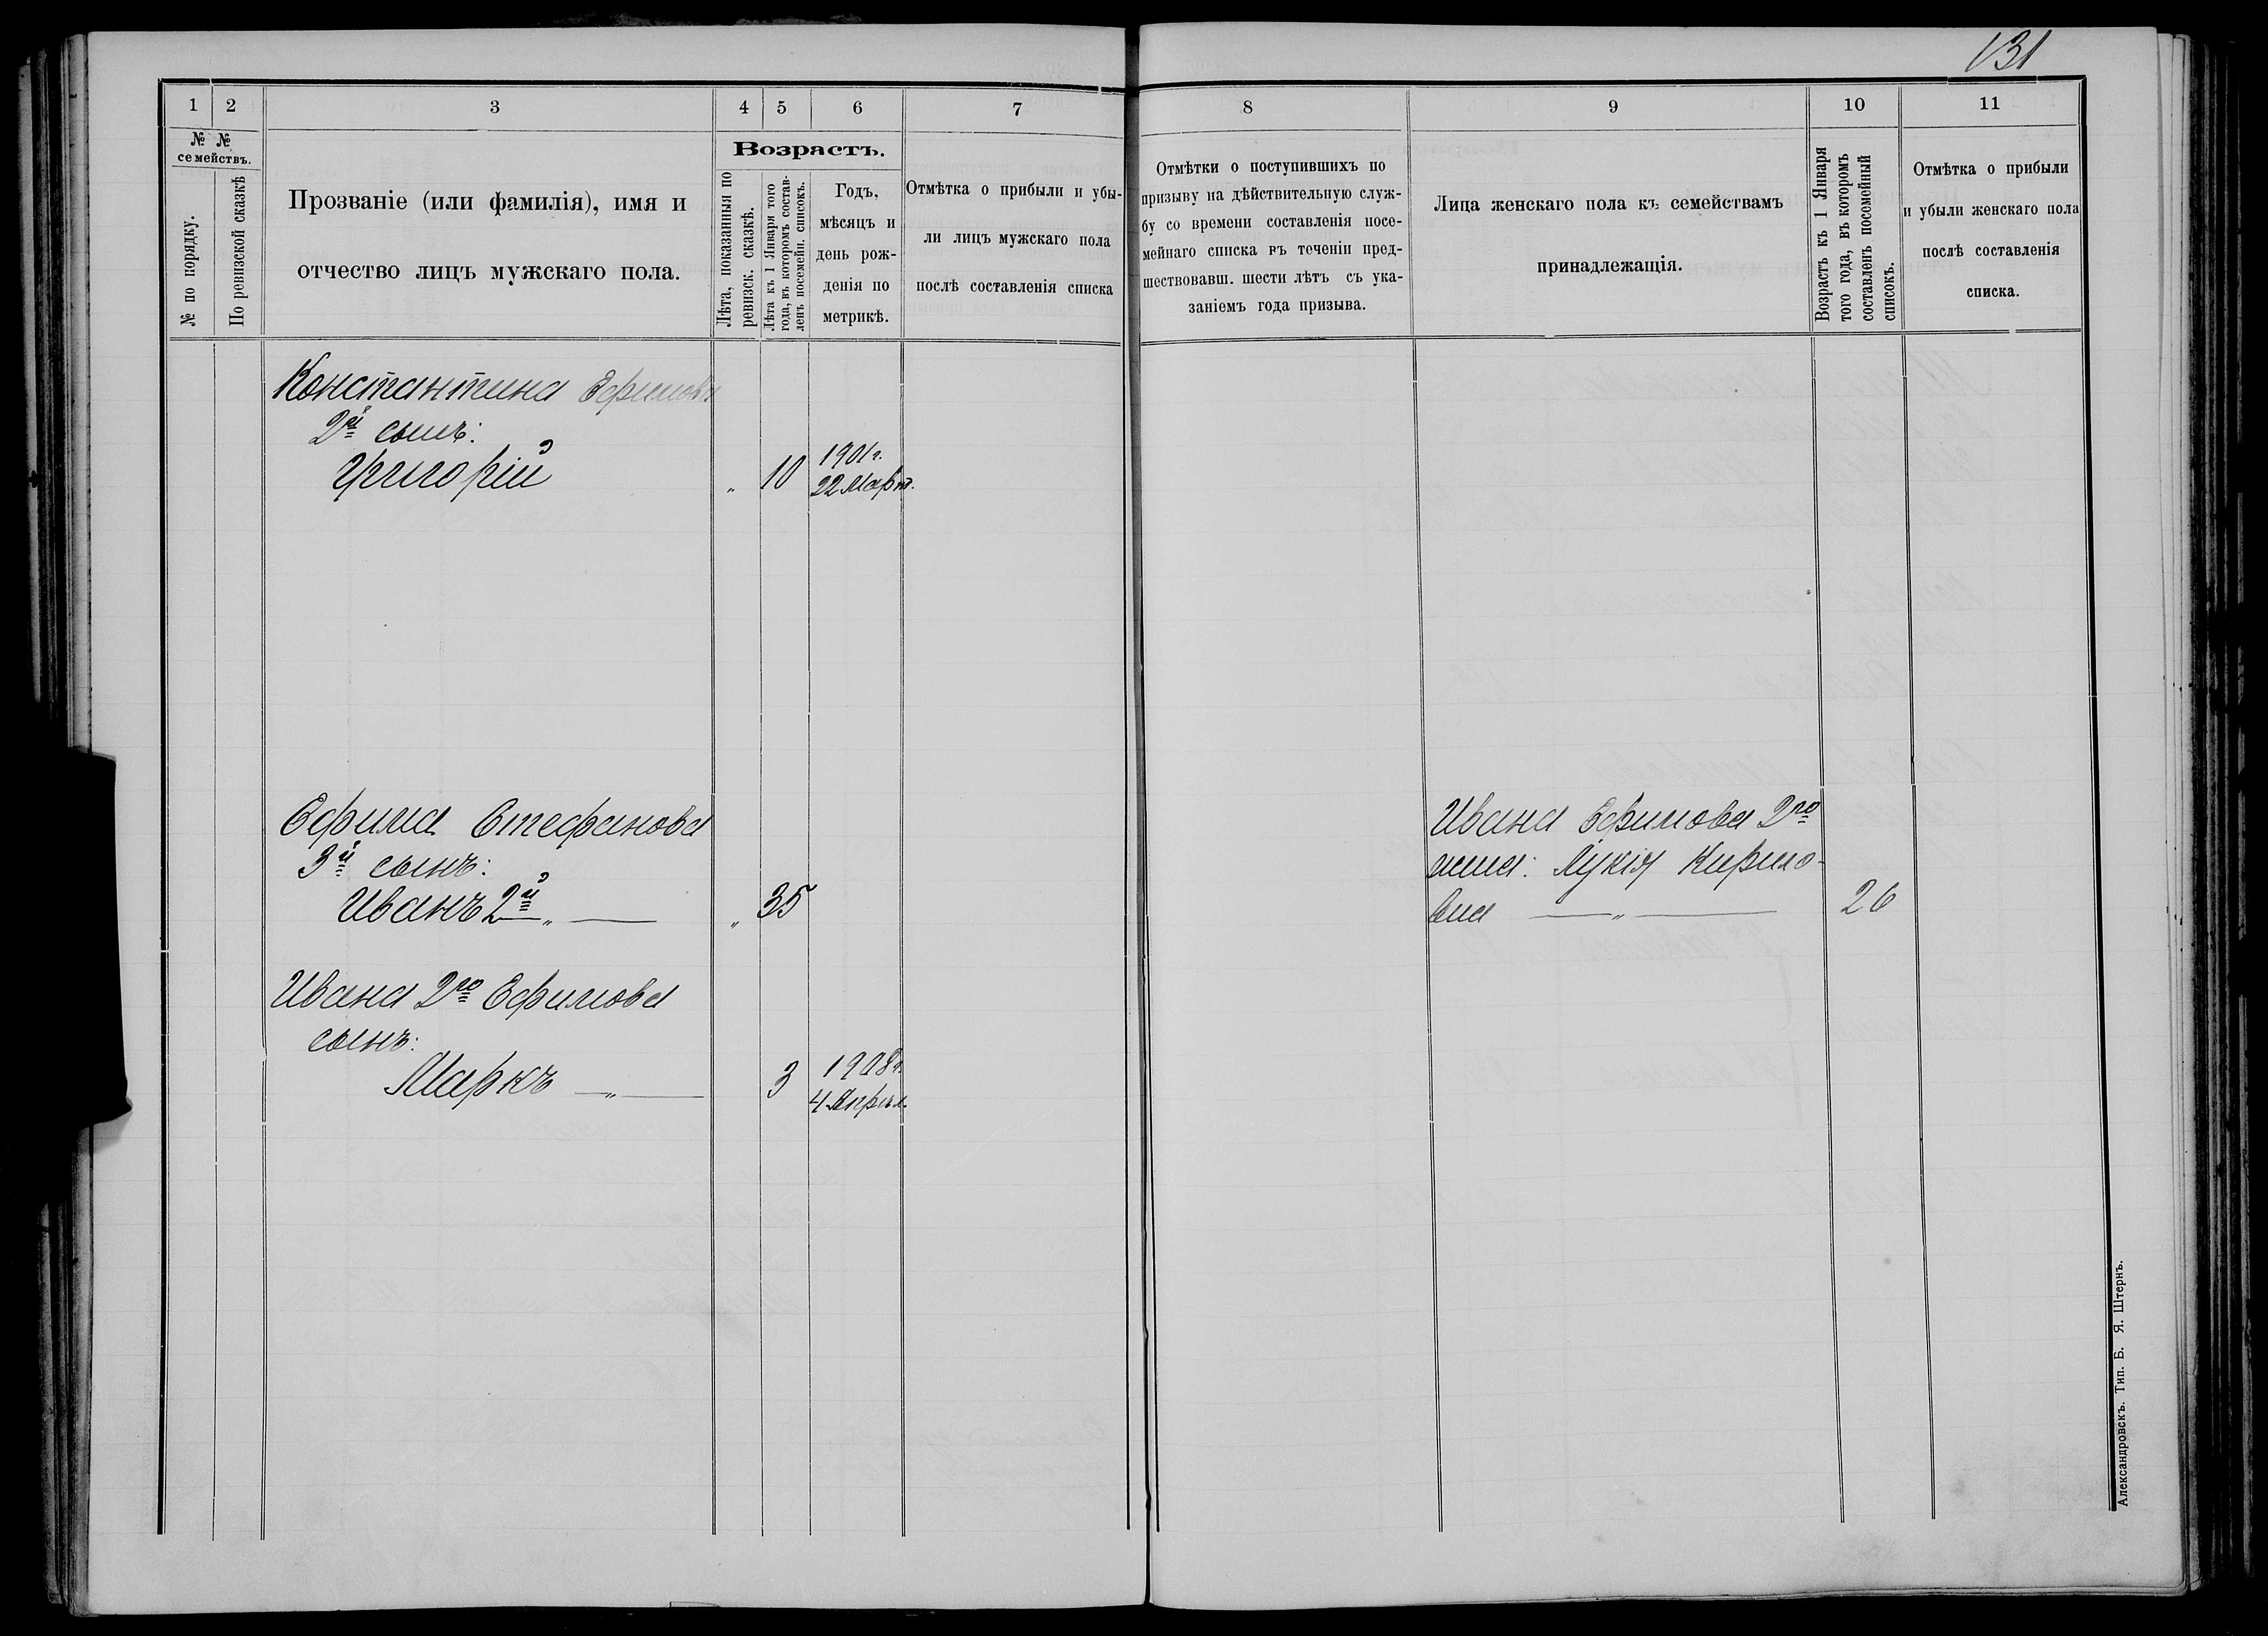 131
1 2 3 4 5 6 7 8 9 10 11
№ №
семействъ.
№ по порядку.
По ревизской сказкѣ
Прозваніе (или фамилія), имя и
отчество лицъ мужскаго пола.
Возрастъ.
Лѣта, показанныя по
ревизск. сказкѣ.
Лѣта къ 1 Января того
года, въ которомъ состав-
ленъ посемейн. списокъ.
Годъ,
мѣсяцъ и
день рож-
денія по
метрикѣ.
Отмѣтка о прибыли и убы-
ли лицъ мужскаго пола
послѣ составленія списка
Отмѣтки о поступившихъ по
призыву на дѣйствительную служ-
бу со времени составленія посе-
мейнаго списка въ теченіи пред-
шествовавш. шести лѣтъ съ ука-
заніемъ года призыва.
Лица женскаго пола къ семействамъ
принадлежащія.
Возрастъ къ 1 Января
того года, въ которомъ
составленъ посемейный
списокъ.
Отмѣтка о прибыли
и убыли женскаго пола
послѣ составленія
списка.
Константина Ефимова
2й сынъ:
Григорій „ 10 1901г.
22 Март.
Ефима Стефанова
3й сынъ:
Иванъ 2й — „ — „ 35
Ивана 2го Ефимова
сынъ:
Маркъ — „ — 3 1908г.
4 Април.
Ивана Ефимова 2го
жена: Лукія Кирило-
вна — „ — 26
Александровскъ. Тип. Б. Я. Штернъ.